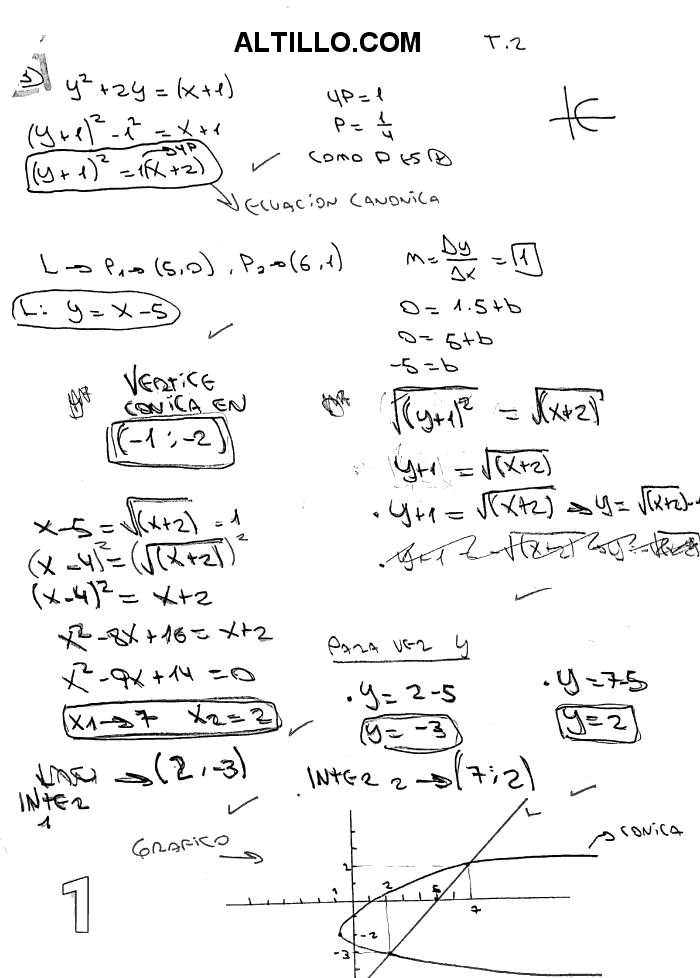 ALTILLO.COM
T.2
3) y² + 2y = (x+1)
(y+1)² - 1² = x+1
(y+1)² = 1(x+2)
→4P
4P = 1
P = 1/4
COMO P ES ⊕
ECUACION CANONICA
L → P₁→(5,0), P₂→(6,1)
L: y = x-5
m = Δy/Δx = 1
0 = 1.5+b
0 = 5+b
-5 = b
VERTICE
CONICA EN
(-1;-2)
√(y+1)² = √(x+2)
y+1 = √(x+2)
. y+1 = √(x+2) → y = √(x+2)-1
x-5 = √(x+2) - 1
(x-4)² = (√(x+2))²
(x-4)² = x+2
x² - 8x+16 = x+2
x² - 9x+14 = 0
x1→7 x2=2
PARA VER y
. y = 2-5
y = -3
. y = 7-5
y = 2
→(2,-3)
INTER
1
INTER 2 →(7;2)
GRAFICO →
L
→CONICA
2
1 2 5 7
-2
-3
1